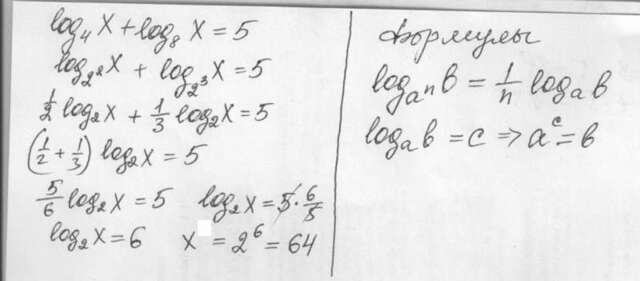 log₄ x + log₈ x = 5
log₂² x + log₂³ x = 5
1/2 log₂ x + 1/3 log₂ x = 5
(1/2 + 1/3) log₂ x = 5
5/6 log₂ x = 5    log₂ x = 5 · 6/5
log₂ x = 6    x = 2⁶ = 64
Формулы
logₐⁿ b = 1/n logₐ b
logₐ b = c ⇒ aᶜ = b